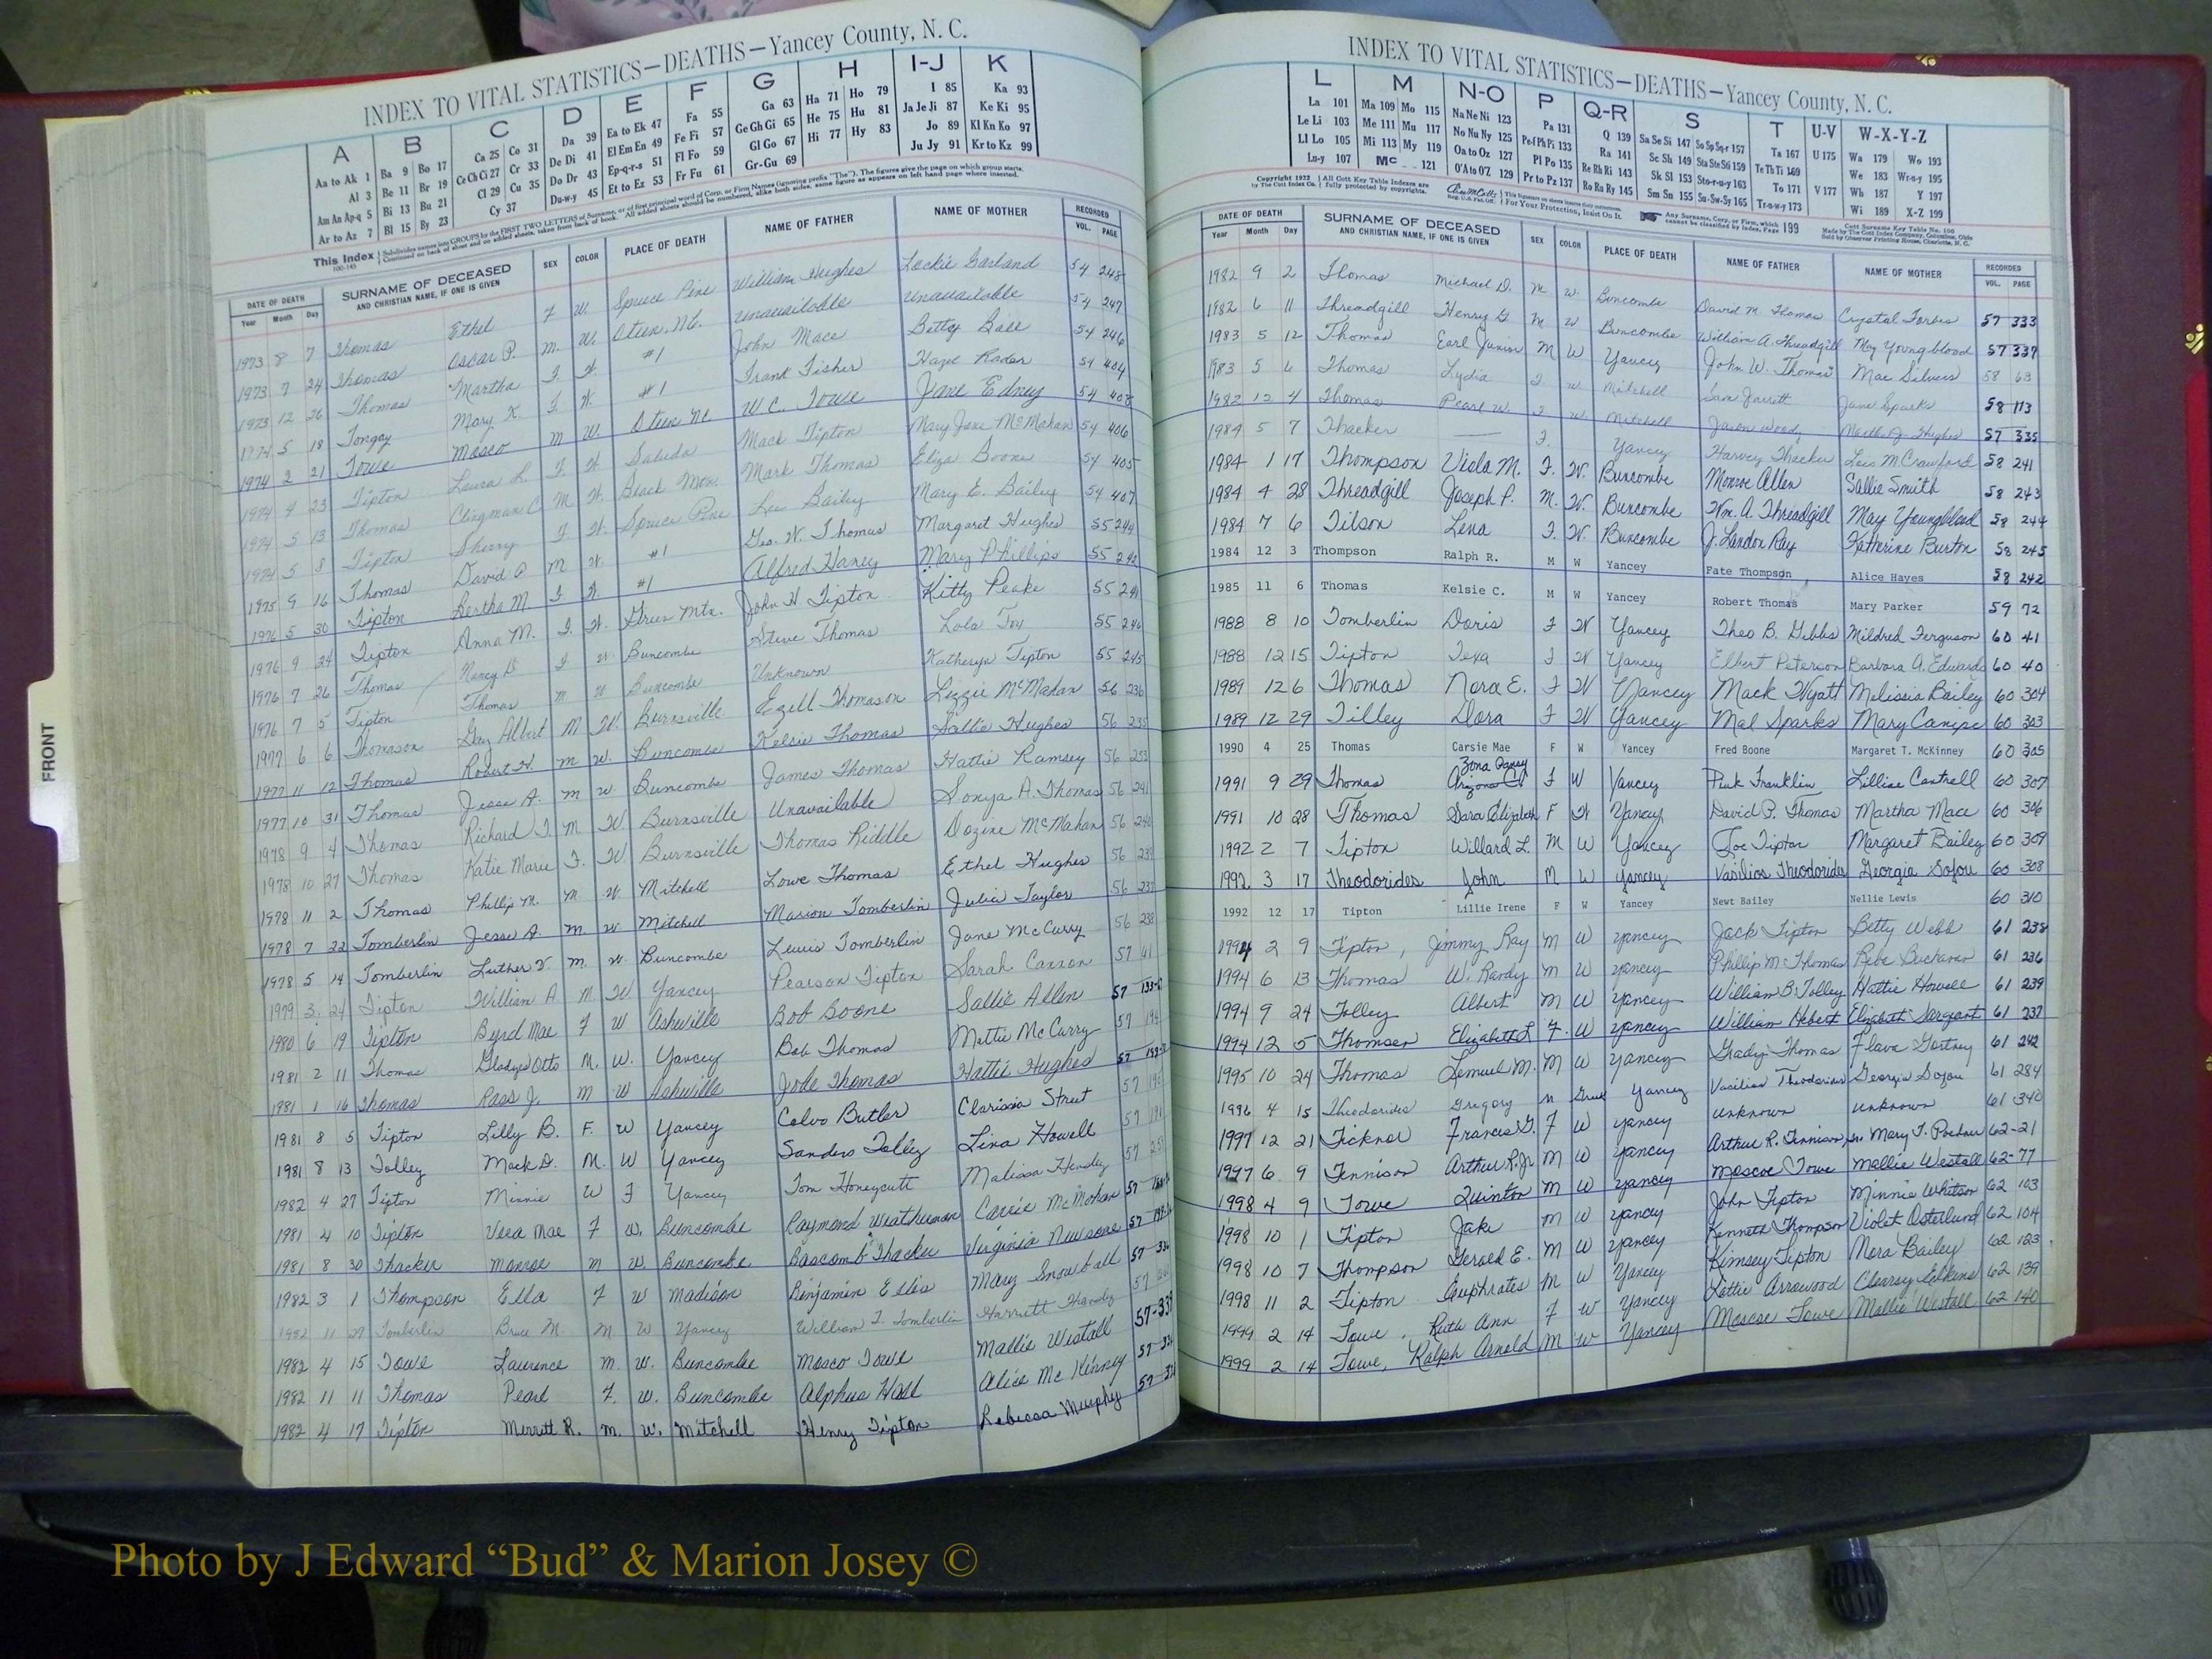 INDEX TO VITAL STATISTICS—DEATHS—Yancey County, N. C.
A B C D E F G H I-J K
Aa to Ak 1 Ba 9 Bo 17 Ca 25 Co 31 Da 39 Ea to Ek 47 Fa 55 Ga 63 Ha 71 Ho 79 I 85 Ka 93
Al 3 Be 11 Br 19 Ce Ch Ci 27 Cr 33 De Di 41 El Em En 49 Fe Fi 57 Ge Gh Gi 65 He 75 Hu 81 Ja Je Ji 87 Ke Ki 95
Am An Ap-q 5 Bi 13 Bu 21 Cl 29 Cu 35 Do Dr 43 Ep-q-r-s 51 Fl Fo 59 Gl Go 67 Hi 77 Hy 83 Jo 89 Kl Kn Ko 97
Ar to Az 7 Bl 15 By 23 Cy 37 Du-w-y 45 Et to Ez 53 Fr Fu 61 Gr-Gu 69 Ju Jy 91 Kr to Kz 99
This Index Subdivides names into GROUPS by the FIRST TWO LETTERS of Surname, or of first principal word of Corp. or Firm Names (ignoring prefix "The"). The figures give the page on which group starts.
Continued on back of sheet and on added sheets, taken from back of book. All added sheets should be numbered, alike both sides, same figure as appears on left hand page where inserted.
DATE OF DEATH SURNAME OF DECEASED AND CHRISTIAN NAME, IF ONE IS GIVEN SEX COLOR PLACE OF DEATH NAME OF FATHER NAME OF MOTHER RECORDED
Year Month Day VOL. PAGE
1973 8 7 Thomas Ethel F W. Spruce Pine William Hughes Lockie Garland 54 248
1973 7 24 Thomas Oscar P. M. W. Oteen, N.C. Unavailable Unavailable 54 247
1973 12 26 Thomas Martha F. W. #1 John Mace Betty Ball 54 246
1974 5 18 Tongay Mary K. F. W. #1 Frank Fisher Hazel Rader 54 404
1974 2 21 Towe Mosco M W. Oteen NC W C. Towe Jane Edney 54 408
1974 4 23 Tipton Laura L. F. W. Saluda Mack Tipton Mary Jane McMahan 54 406
1974 5 13 Thomas Clingman C. M. W. Black Mtn. Mark Thomas Eliza Boone 54 405
1974 5 8 Tipton Sherry F W. Spruce Pine Lee Bailey Mary E. Bailey 54 407
1975 9 16 Thomas David O M W. #1 Geo. W. Thomas Margaret Hughes 55 244
1976 5 30 Tipton Bertha M F W. #1 Alfred Haney Mary Phillips 55 242
1976 9 24 Tipton Anna M. F. W. Green Mtn. John H Tipton Kitty Peake 55 241
1976 7 26 Thomas Nancy D F W Buncombe Steve Thomas Lola Toy 55 246
1976 7 5 Tipton Thomas M W Buncombe Unknown Katheryn Tipton 55 245
1977 6 6 Thomason Guy Albert M W. Burnsville Ezell Thomason Lizzie McMahan 56 236
1977 11 12 Thomas Robert H. M W. Buncombe Kelsie Thomas Sallie Hughes 56 235
1977 10 31 Thomas Jesse A. M W Buncombe James Thomas Hattie Ramsey 56 253
1978 9 4 Thomas Richard T. M W. Burnsville Unavailable Sonya A. Thomas 56 241
1978 10 27 Thomas Katie Marie F. W Burnsville Thomas Riddle Dozine McMahan 56 240
1978 11 2 Thomas Phillip M. M W. Mitchell Lowe Thomas Ethel Hughes 56 239
1978 7 22 Tomberlin Jesse A. M W Mitchell Marion Tomberlin Julia Taylor 56 237
1978 5 14 Tomberlin Luther V. M. W. Buncombe Lewis Tomberlin Jane McCurry 56 238
1979 3 24 Tipton William A M. W Yancey Pearson Tipton Sarah Cannon 57 41
1980 6 19 Tipton Byrd Mae F W Asheville Bob Boone Sallie Allen 57
1981 2 11 Thomas Gladys Otto M. W. Yancey Bob Thomas Mettie McCurry 57
1981 1 16 Thomas Ross J. M W Asheville Jode Thomas Hattie Hughes 57
1981 8 5 Tipton Lilly B. F. W Yancey Calvo Butler Clarissia Street 57
1981 8 13 Tolley Mack D. M. W Yancey Sanders Tolley Lina Howell 57
1982 4 27 Tipton Minnie W F Yancey Tom Honeycutt Malissa Hensley 57
1981 4 10 Tipton Vera Mae F W. Buncombe Raymond Weatherman Carrie McMahan 57
1981 8 30 Thacker Monroe M W Buncombe Bascomb Thacker Virginia Newsone 57
1982 3 1 Thompson Ella F W Madison Benjamin Ellis Mary Snowball 57
1982 11 27 Tomberlin Bruce M. M W Yancey William T. Tomberlin Harriett Hensley 57
1982 4 15 Towe Lawrence M. W. Buncombe Mosco Towe Mallie Westall 57-338
1982 11 11 Thomas Pearl F. W. Buncombe Alphus Hall Alice McKinney 57
1982 4 17 Tipton Merritt R. M. W. Mitchell Henry Tipton Rebecca Murphy 57
INDEX TO VITAL STATISTICS—DEATHS—Yancey County, N. C.
L M N-O P Q-R S T U-V W-X-Y-Z
La 101 Ma 109 Mo 115 Na Ne Ni 123 Pa 131 Q 139 Sa Se Si 147 So Sp Sq-r 157 Ta 167 U 175 Wa 179 Wo 193
Le Li 103 Me 111 Mu 117 No Nu Ny 125 Pe-f Ph Pi 133 Ra 141 Sc Sh 149 Sta Ste Sti 159 Te Th Ti 169 We 183 Wr-u-y 195
Ll Lo 105 Mi 113 My 119 Oa to Oz 127 Pl Po 135 Re Rh Ri 143 Sk Sl 153 Sto-r-u-y 163 To 171 V 177 Wh 187 Y 197
Lu-y 107 Mc 121 O'A to O'Z 129 Pr to Pz 137 Ro Ru Ry 145 Sm Sn 155 Su-Sw-Sy 165 Tr-u-w-y 173 Wi 189 X-Z 199
Copyright 1922 by The Cott Index Co. All Cott Key Table Indexes are fully protected by copyrights. For Your Protection, Insist On It. Any Surname, Corp. or Firm, which cannot be classified by Index, Page 199 Cott Surname Key Table No. 100
Made by The Cott Index Company, Columbus, Ohio
Sold by Observer Printing House, Charlotte, N. C.
DATE OF DEATH SURNAME OF DECEASED AND CHRISTIAN NAME, IF ONE IS GIVEN SEX COLOR PLACE OF DEATH NAME OF FATHER NAME OF MOTHER RECORDED
Year Month Day VOL. PAGE
1982 9 2 Thomas Michael D. M W. Buncombe David M. Thomas Crystal Forbes 57 333
1982 6 11 Threadgill Henry G M W Buncombe William A. Threadgill May Youngblood 57 337
1983 5 12 Thomas Earl Junior M W Yancey John W. Thomas Mae Silvers 58 63
1983 5 6 Thomas Lydia F W Mitchell Sam Jarrett Jane Sparks 58 113
1982 12 4 Thomas Pearl W. F W Mitchell Jason Woody Hughes 57 335
1984 5 7 Thacker — F. Yancey Harvey Thacker Lois M Crawford 58 241
1984 1 17 Thompson Viola M. F. W. Buncombe Monroe Allen Sallie Smith 58 243
1984 4 28 Threadgill Joseph P. M. W. Buncombe Wm. A. Threadgill May Youngblood 58 244
1984 7 6 Tilson Lena F. W. Buncombe J. Landon Ray Katherine Burton 58 245
1984 12 3 Thompson Ralph R. M W Yancey Fate Thompson Alice Hayes 58 242
1985 11 6 Thomas Kelsie C. M W Yancey Robert Thomas Mary Parker 59 72
1988 8 10 Tomberlin Doris F W Yancey Theo B. Gibbs Mildred Ferguson 60 41
1988 12 15 Tipton Texa F W Yancey Elbert Peterson Barbara A. Edwards 60 40
1989 12 6 Thomas Nora E. F W Yancey Mack Wyatt Melissia Bailey 60 304
1989 12 29 Tilley Dora F W Yancey Mal Sparks Mary Canipe 60 303
1990 4 25 Thomas Carsie Mae F W Yancey Fred Boone Margaret T. McKinney 60 305
1991 9 29 Thomas Zona F W Yancey Pink Franklin Lillian Cantrell 60 307
1991 10 28 Thomas Sara Elizabeth F W Yancey David P. Thomas Martha Mace 60 306
1992 2 7 Tipton Willard L. M W Yancey Joe Tipton Margaret Bailey 60 309
1992 3 17 Theodorides John M W Yancey Vasilios Theodorides Georgia Sofou 60 308
1992 12 17 Tipton Lillie Irene F W Yancey Newt Bailey Nellie Lewis 60 310
1994 2 9 Tipton, Jimmy Ray M W Yancey Jack Tipton Betty Webb 61 238
1994 6 13 Thomas W. Randy M W Yancey Phillip M Thomas Reba Buchanan 61 236
1994 9 24 Tolley Albert M W Yancey William B. Tolley Hattie Howell 61 239
1994 12 5 Thomsen Elizabeth L F. W Yancey William Hebert Elizabeth Sargent 61 237
1995 10 24 Thomas Lemuel M. M W Yancey Grady Thomas Flava Gortney 61 242
1996 4 15 Theodorides Gregory M Greek Yancey Vacilias Theodorides Georgia Sofou 61 284
1997 12 21 Ticknor Frances G. F W Yancey unknown unknown 61 340
1997 6 9 Tennison Arthur R. Jr M W Yancey Arthur R. Tennison, Sr. Mary T. 62-21
1998 4 9 Towe Quinton M W Yancey Moscoe Towe Mallie Westall 62-77
1998 10 1 Tipton Jake M W Yancey John Tipton Minnie Whitson 62 103
1998 10 7 Thompson Gerald E. M W Yancey Kenneth Thompson Violet Osterlund 62 104
1998 11 2 Tipton Euphrates M W Yancey Kimsey Tipton Nora Bailey 62 123
1999 2 14 Towe, Ruth Ann F W Yancey Lottie Arrowood Clearsy Elkins 62 139
1999 2 14 Towe, Ralph Arnold M W Yancey Moscoe Towe Mallie Westall 62 140
FRONT
Photo by J Edward “Bud” & Marion Josey ©